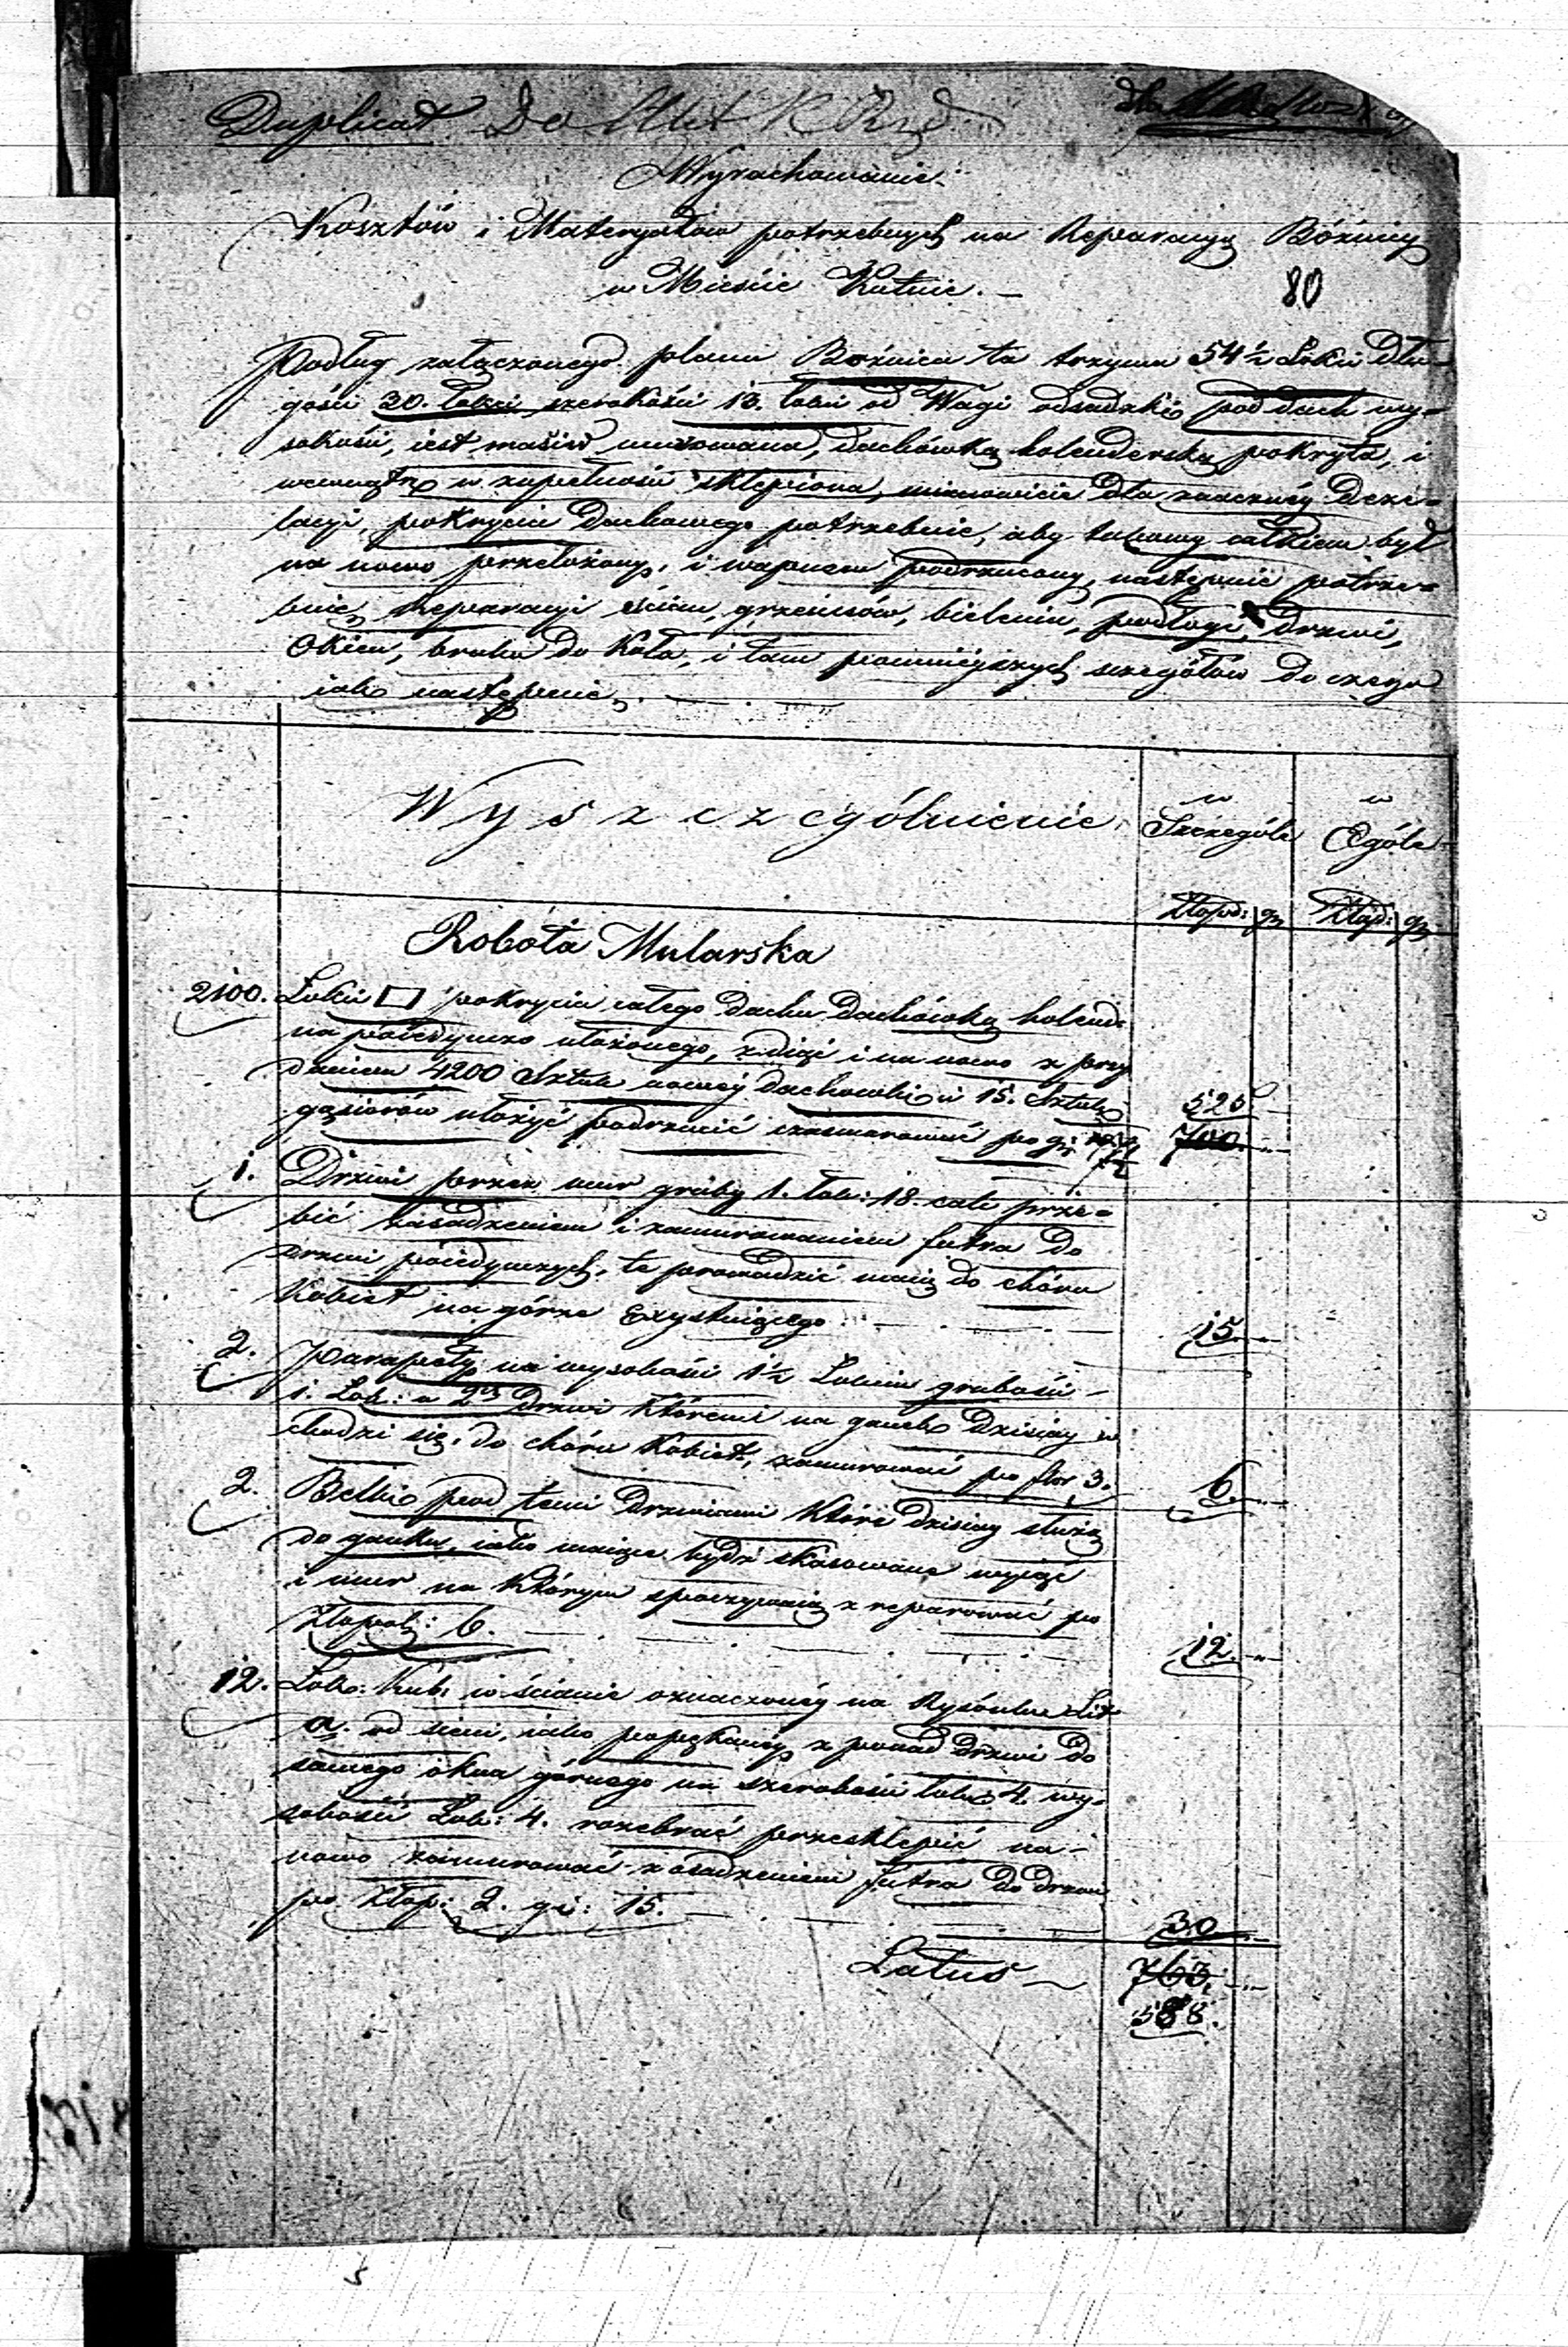 Duplicat Do
Wyrachowanie
Kosztów i Materyałów potrzebnych na Reparacyą Bóżnicy
w Mieście Kutnie. —
80
Podług załączonego planu Bożnica ta trzyma 54½ Łokci dłu-
gości 30. Łokci szerokości 13. łokci od Wagi odsadzki pod dach wy-
sokości, iest masiw murowana, dachówką holenderską pokryta, i
wewnątrz w zupełności sklepiona, mianowicie dla znaczney
pokrycia dachowego potrzebnie, aby takowy całkiem był
na nowo przełożony, i wapnem podrzucony, następnie potrze-
buie, Reparacyi ścian, gzemsów, bielenia, podłogi, drzwi,
Okien, bruku do Koła, i tam pomnieyszych szczegółów do czego
iako następuie
Wyszczególnienie
w Szczególe
w Ogóle
Złopol: gr
Złopl: gr
Robota Mularska
2100. Łokci □ pokrycia całego dachu Dachówką holend:
na poiedynczo ułożonego, zdiąć i na nowo z przy
daniem 4200 Sztuk nowey dachowki i 15. Sztuk
gąsiorów ułożyć podrzucić i zasmarować po gr: 7½ 525
700
1. Drzwi przez mur gruby 1. łok: 18. cali prze-
bić zasadzeniem i zamurowaniem futra do
drzwi poiedynczych, te prowadzić maią do chóru
Kobiet na górze Exystuiącego 15.
2. Parapety na wysokości 1½ Łokcia grubości
1. Łok: w 2ch Drzwi któremi na ganek dzisiay w
chodzi się, do chóru Kobiet, zamurować po flor 3. 6.
2. Belki pod temi Drzwiami Które dzisiay służą
do ganku, iako maiące bydź skasowane wyiąć
i mur na Którym spoczywaią zreparować po
Złopol: 6. 12.
12. Łok: Kub: w ścianie oznaczoney na Rysunku Lit
a. od sieni, iako popękaney z ponad Drzwi do
samego okna górnego na szerokości łokci 4. wy-
sokości Łok: 4. rozebrać przesklepić na-
nowo zamurować z osadzeniem futra do drzwi
po Złop: 2. gr: 15. 30
Latus 763.
588.